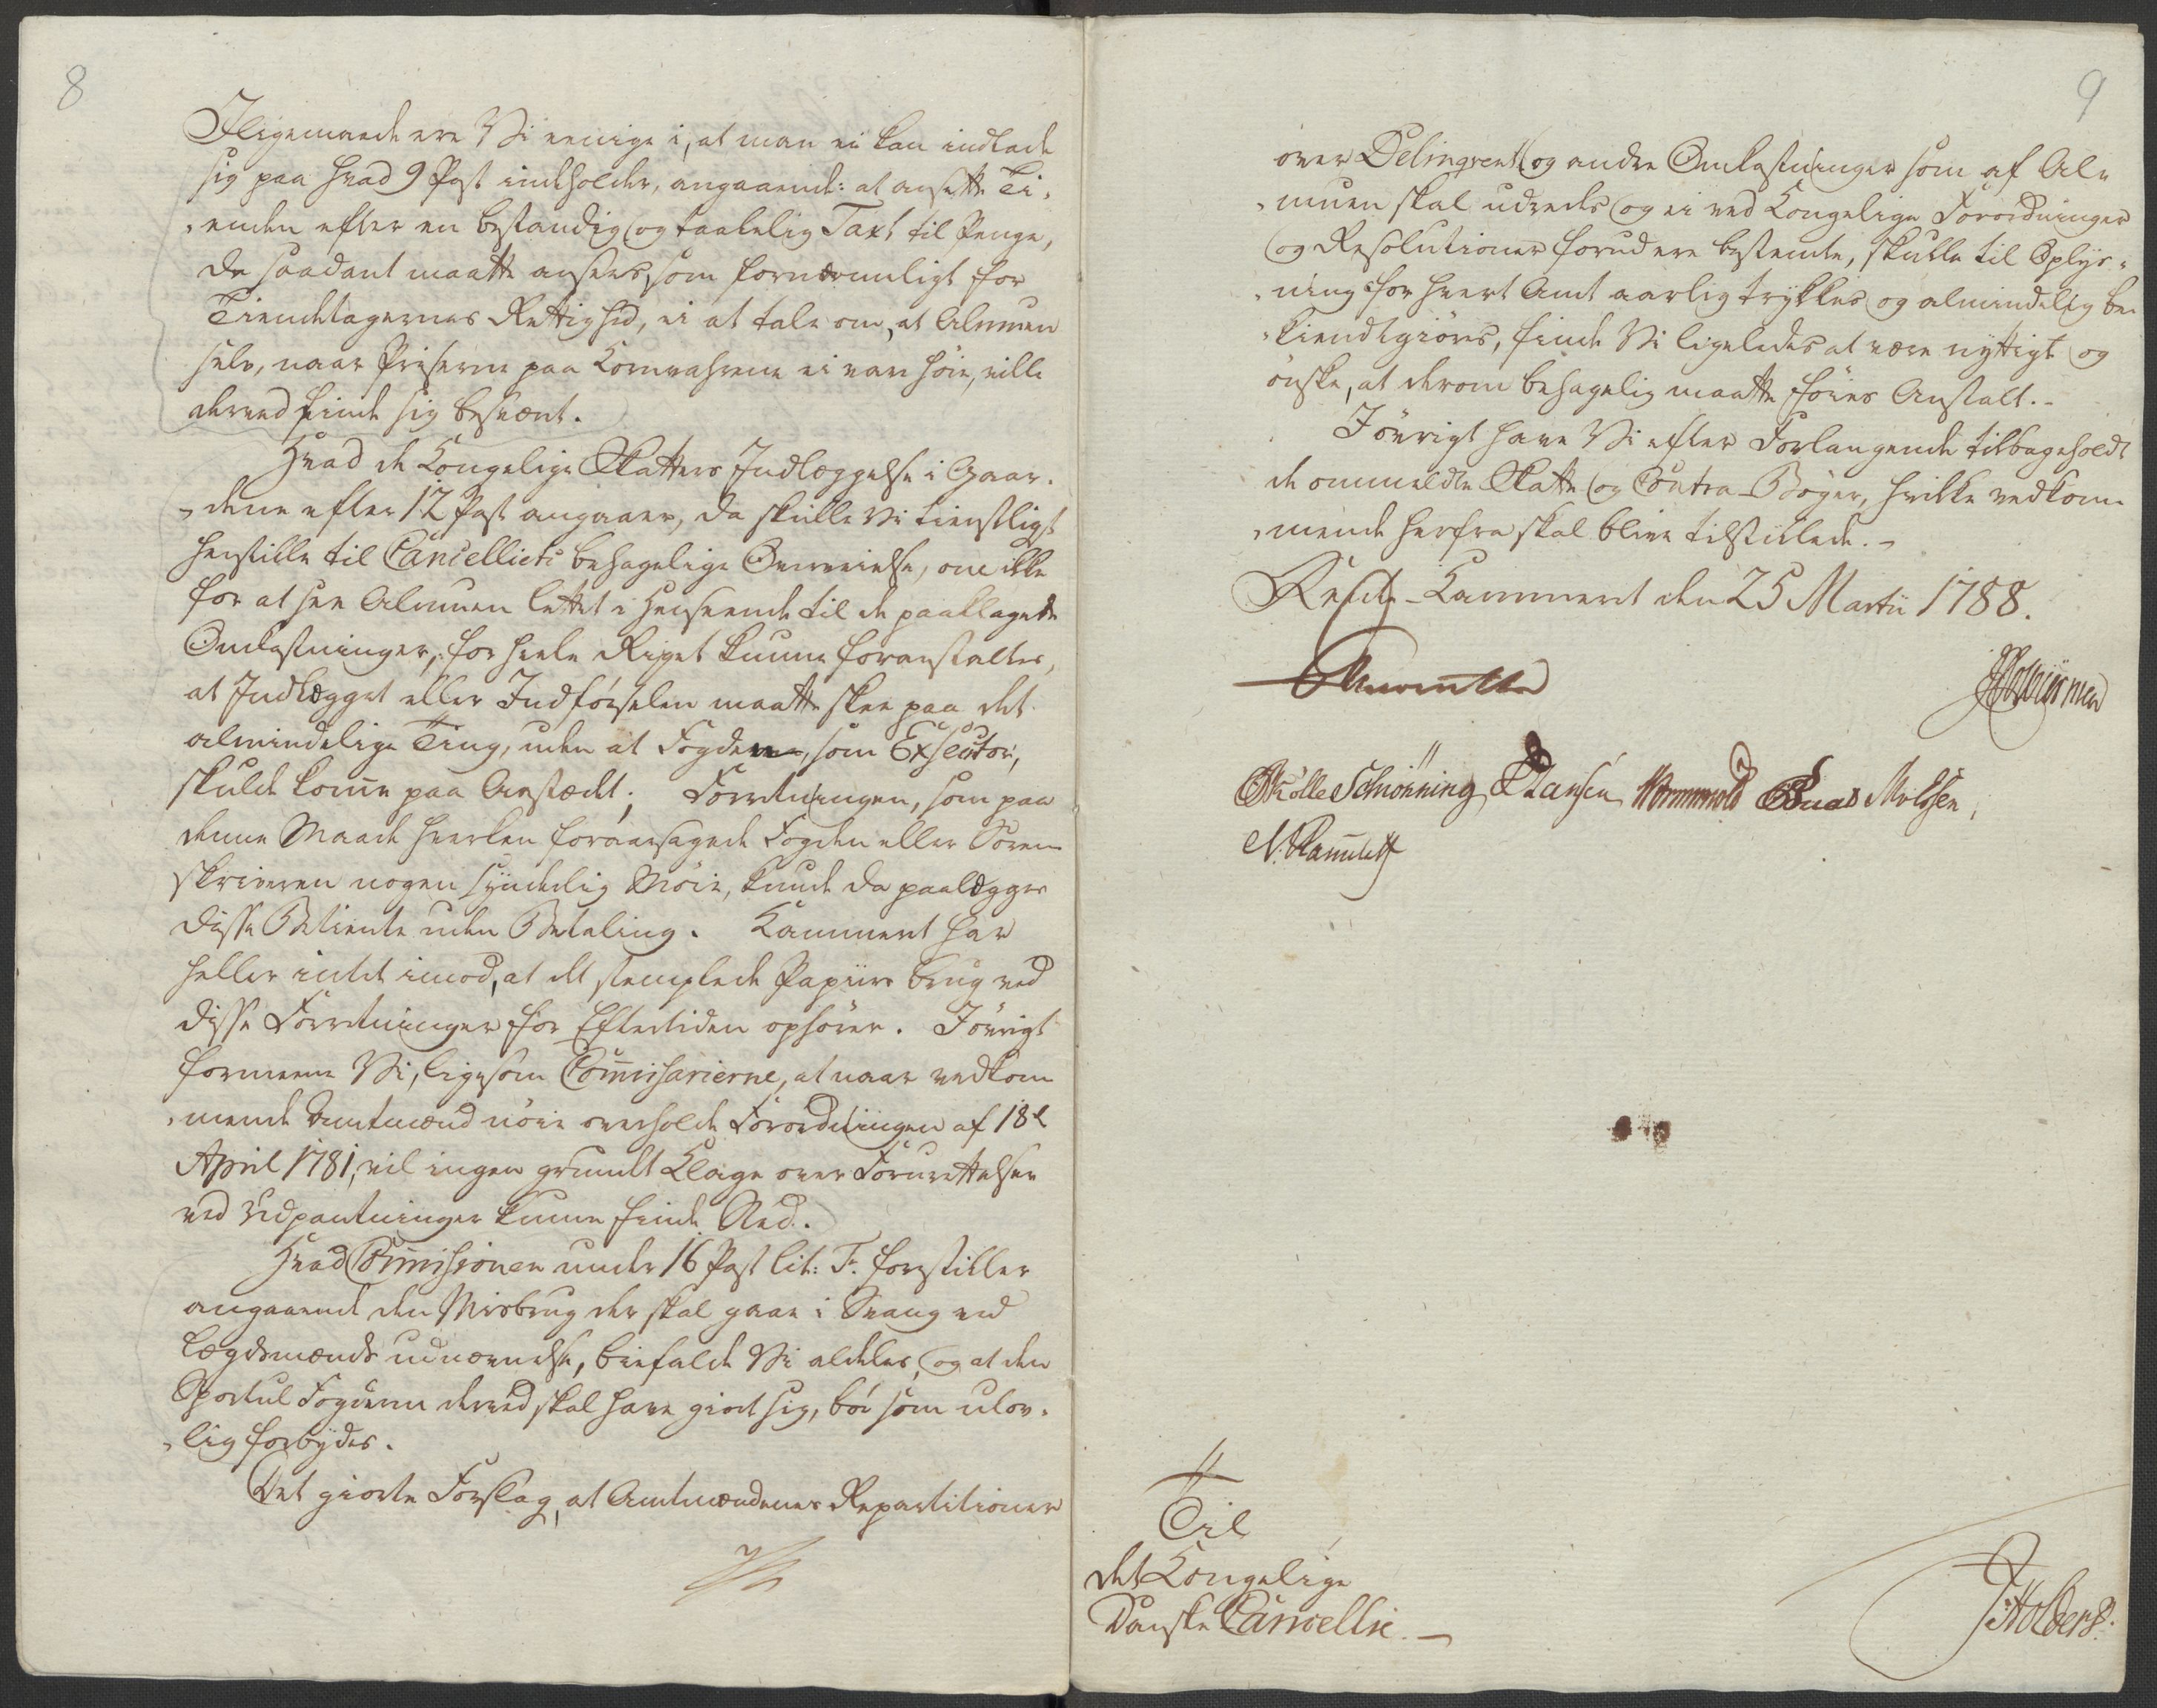 8
Iligemaade ere Vi eenige i, at man ei kan indlade
sig paa hvad 9 Post indeholder, angaaende: at ansætte Ti-
-enden efter en bestandig og taalelig Taxt til Penge,
da saadant maatte ansees, som fornærmeligt for
Tiendetagernes Rettighed, ei at tale om, at Almuen
selv, naar Priserne paa Kornvahrene ei var høie, ville
derved finde sig besværet.
Hvad de Kongelige Skatters Indlæggelse i Gaar-
-dene efter 12 Post angaaer, da skulle Vi tienstligst
henstille til Cancelliets behagelige Overveielse, om ikke
for at see Almuen lettet i Henseende til de paaklagede
Omkostninger, for heele Riget kunne foranstaltes,
at Indlægget eller Indførselen maatte skee paa det
almindelige Ting, uden at Fogden, som Executor,
skulde komme paa Aastædet; Forretningen, som paa
denne Maade hverken foraarsagede Fogden eller Soren-
skriveren nogen synderlig Møie, kunde da paalægges
disse Betiente uden Betaling. Kammeret har
heller intet imod, at det stemplede Papiirs brug ved
disse Forretninger for Eftertiden ophører. Iøvrigt
formeene Vi, ligesom Commissarierne, at naar vedkom-
-mende Amtmænd nøie overholde Forordningen af 18de
April 1781, vil ingen grundet Klage over Forurettelser
ved Udpantninger kunne finde Sted.
Hvad Commissionen under 16 Post lit: F. forestiller
angaaende den Misbrug der skal gaae i Svang ved
Lægdsmænds udnævnelse, biefalde Vi aldeles, og at den
Sportul Fogderne derved skal have giort sig, bør som ulov-
-lig forbydes.
Det giorte Forslag, at Amtmændenes Repartitioner
9
over Delinqvent og andre Omkostninger som af Al-
-muen skal udredes og ei ved Kongelige Forordninger
og Resolutioner forud ere bestemte, skulle til Oplys-
-ning for hvert Amt aarlig trykkes og almindelig be-
-kiendtgiøres, finde Vi ligeledes at være nyttigt og
ønske, at derom behagelig maatte føies Anstalt.-
Iøvrigt have Vi efter Forlangende tilbageholdt
de ommeldte Skatte og Contra-Bøger, hvilke vedkom-
-mende herfra skal blive tilstillede.-
Rente-Kammeret den 25 Martii 1788.
Schiønning Hansen Wormskiold
Til
det Kongelige
Danske Cancellie.-